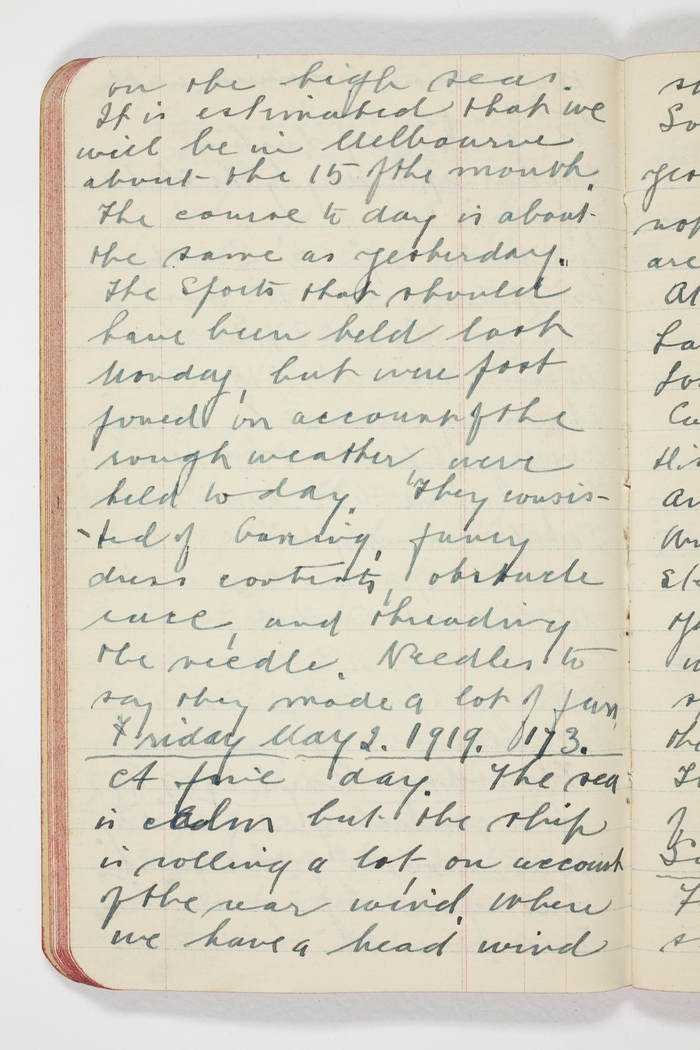 on the high seas.
It is estimated that we
will be in Melbourne
about the 15 of the month.
The course to day is about
the same as yesterday.
The Sports that should
have been held last
Monday, but were post
poned on account of the
rough weather, were
held to day. They consis-
ted of boxing, funny
dress contests, obstacle
race, and threading
the needle. Needles to
say they made a lot of fun
Friday May 2. 1919. 173.
A fine day. The sea
is calm but the ship
is rolling a lot, on account
of the rear wind. Where
we have a head wind